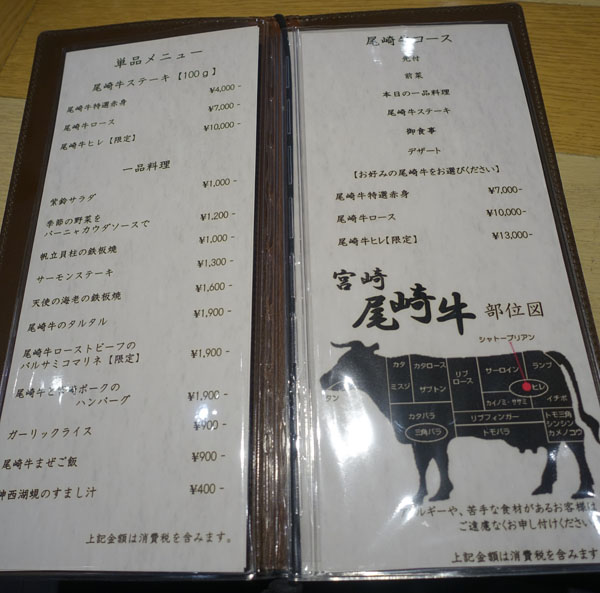 単品メニュー
尾崎牛ステーキ【100g】
尾崎牛特選赤身 ¥4,000-
尾崎牛ロース ¥7,000-
尾崎牛ヒレ【限定】 ¥10,000-
一品料理
紫鈴サラダ ¥1,000-
季節の野菜を
バーニャカウダソースで ¥1,200-
帆立貝柱の鉄板焼 ¥1,000-
サーモンステーキ ¥1,300-
天使の海老の鉄板焼 ¥1,600-
尾崎牛のタルタル ¥1,900-
尾崎牛ローストビーフの
バルサミコマリネ【限定】 ¥1,900-
尾崎牛と ポークの
ハンバーグ ¥1,900-
ガーリックライス ¥900-
尾崎牛まぜご飯 ¥900-
神西湖蜆のすまし汁 ¥400-
上記金額は消費税を含みます。
尾崎牛コース
先付
前菜
本日の一品料理
尾崎牛ステーキ
御食事
デザート
【お好みの尾崎牛をお選びください】
尾崎牛特選赤身 ¥7,000-
尾崎牛ロース ¥10,000-
尾崎牛ヒレ【限定】 ¥13,000-
宮崎
尾崎牛 部位図
シャトーブリアン
カタ
カタロース
リブ
ロース
サーロイン
ランプ
ミスジ
ザブトン
ヒレ
タン
カイノミ・ササミ
イチボ
カタバラ
リブフィンガー
トモ三角
シンシン
カメノコウ
三角バラ
トモバラ
ルギーや、苦手な食材があるお客様は
ご遠慮なくお申し付けください
上記金額は消費税を含みます